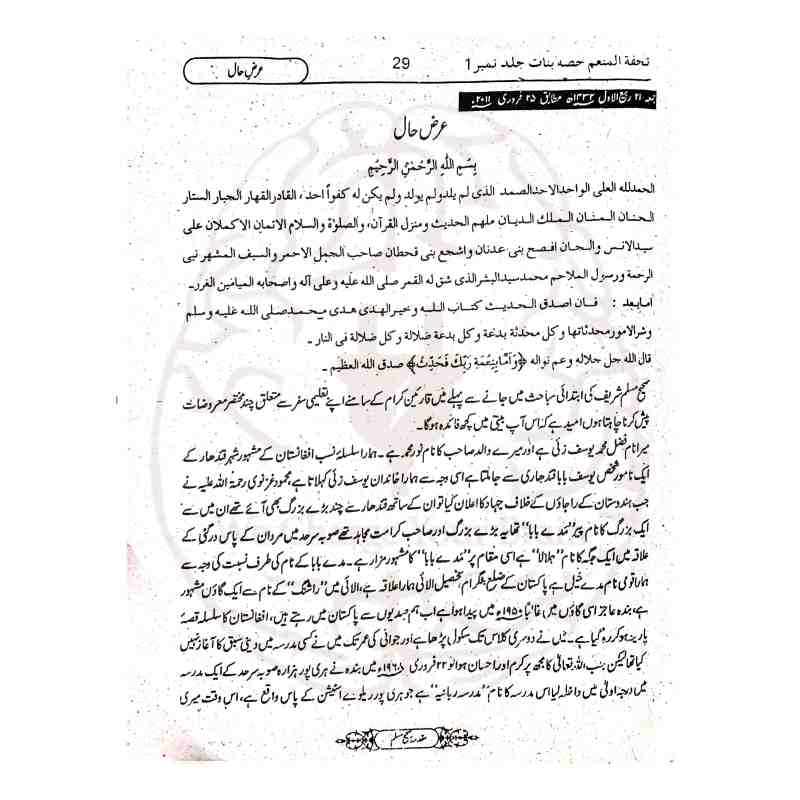 تحفۃ المنعم حصہ بنات جلد نمبر 1 29 عرض حال
جمعہ ۲۱ ربیع الاول ۱۴۳۲ھ مطابق ۲۵ فروری ۲۰۱۱ء
عرض حال
بِسْمِ اللهِ الرَّحْمٰنِ الرَّحِيْمِ
الحمدلله العلى الواحدالاحدالصمد الذى لم يلدولم يولد ولم يكن له كفواً احد، القادرالقهار الجبار الستار
الحنان المنان الملك الديان ملهم الحديث ومنزل القرآن، والصلوٰة والسلام الاتمان الاكملان على
سيدالانس والجان افصح بنى عدنان واشجع بنى قحطان صاحب الجمل الاحمر والسيف المشهر نبى
الرحمة ورسول الملاحم محمدسيدالبشرالذى شق له القمر صلى الله عليه وعلى آله واصحابه الميامين الغرر۔
امابعد : فان اصدق الحديث كتاب الله وخيرالهدى هدى محمدصلى الله عليه وسلم
وشرالامورمحدثاتها وكل محدثة بدعة وكل بدعة ضلالة وكل ضلالة فى النار۔
قال الله جل جلاله وعم نواله ﴿وَاَمَّا بِنِعْمَةِ رَبِّكَ فَحَدِّثْ﴾ صدق الله العظيم۔
صحیح مسلم شریف کی ابتدائی مباحث میں جانے سے پہلے میں قارئین کرام کے سامنے اپنے تعلیمی سفر سے متعلق چند مختصر معروضات
پیش کرنا چاہتا ہوں امید ہے کہ اس آپ بیتی میں کچھ فائدہ ہوگا۔
میرا نام فضل محمد یوسف زئی ہے اور میرے والد صاحب کا نام نور محمد ہے۔ ہمارا سلسلہ نسب افغانستان کے مشہور شہر قندھار کے
ایک نامور شخص یوسف بابا قندھاری سے جا ملتا ہے اسی وجہ سے ہمارا خاندان یوسف زئی کہلاتا ہے، محمود غزنوی رحمۃ اللہ علیہ نے
جب ہندوستان کے راجاؤں کے خلاف جہاد کا اعلان کیا تو ان کے ساتھ قندھار سے چند بڑے بزرگ بھی آئے تھے ان میں سے
ایک بزرگ کا نام پیر "مدے بابا" تھا یہ بڑے بزرگ اور صاحب کرامت مجاہد تھے صوبہ سرحد میں مردان کے پاس درگئی کے
علاقہ میں ایک جگہ کا نام "ہلالا" ہے اسی مقام پر "مدے بابا" کا مشہور مزار ہے۔ مدے بابا کے نام کی طرف نسبت کی وجہ سے
ہمارا قومی نام مدے خیل ہے پاکستان کے ضلع بٹگرام، تحصیل الائی ہمارا علاقہ ہے، الائی میں "راشنگ" کے نام سے ایک گاؤں مشہور
ہے، بندہ عاجز اسی گاؤں میں غالباً ۱۹۵۰ء میں پیدا ہوا ہے اب ہم صدیوں سے پاکستان میں رہتے ہیں، افغانستان کا سلسلہ قصۂ
پارینہ ہو کر رہ گیا ہے۔ میں نے دوسری کلاس تک سکول پڑھا ہے اور جوانی کی عمر تک میں نے کسی مدرسہ میں دینی سبق کا آغاز نہیں
کیا تھا لیکن جب اللہ تعالیٰ کا مجھ پر کرم اور احسان ہوا تو ۲۲ فروری ۱۹۶۸ء میں بندہ نے ہری پور ہزارہ صوبہ سرحد کے ایک مدرسہ
میں درجہ اولیٰ میں داخلہ لیا اس مدرسہ کا نام "مدرسہ ربانیہ" ہے جو ہری پور ریلوے اسٹیشن کے پاس واقع ہے، اس وقت میری
مقدمہ صحیح مسلم